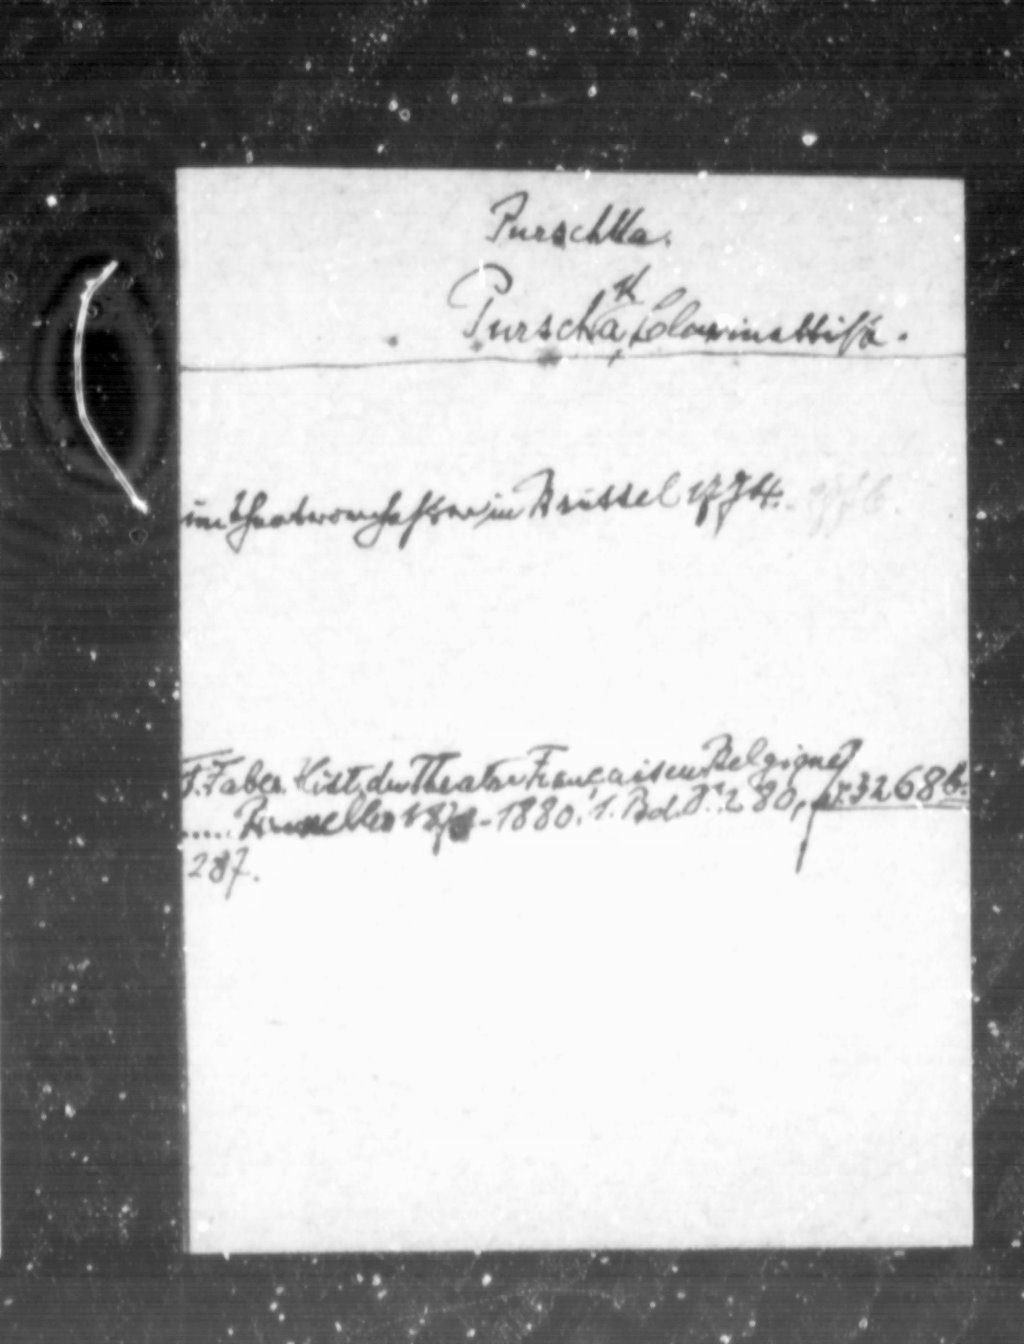 Purschka.
Purschka, Clarinettist.
im Theaterorchester in Brüssel 1774.
F. Faber Hist. du Theatre Français en Belgique
..... Bruxelles 1878-1880. 1. Bd. S. 280, 
287.